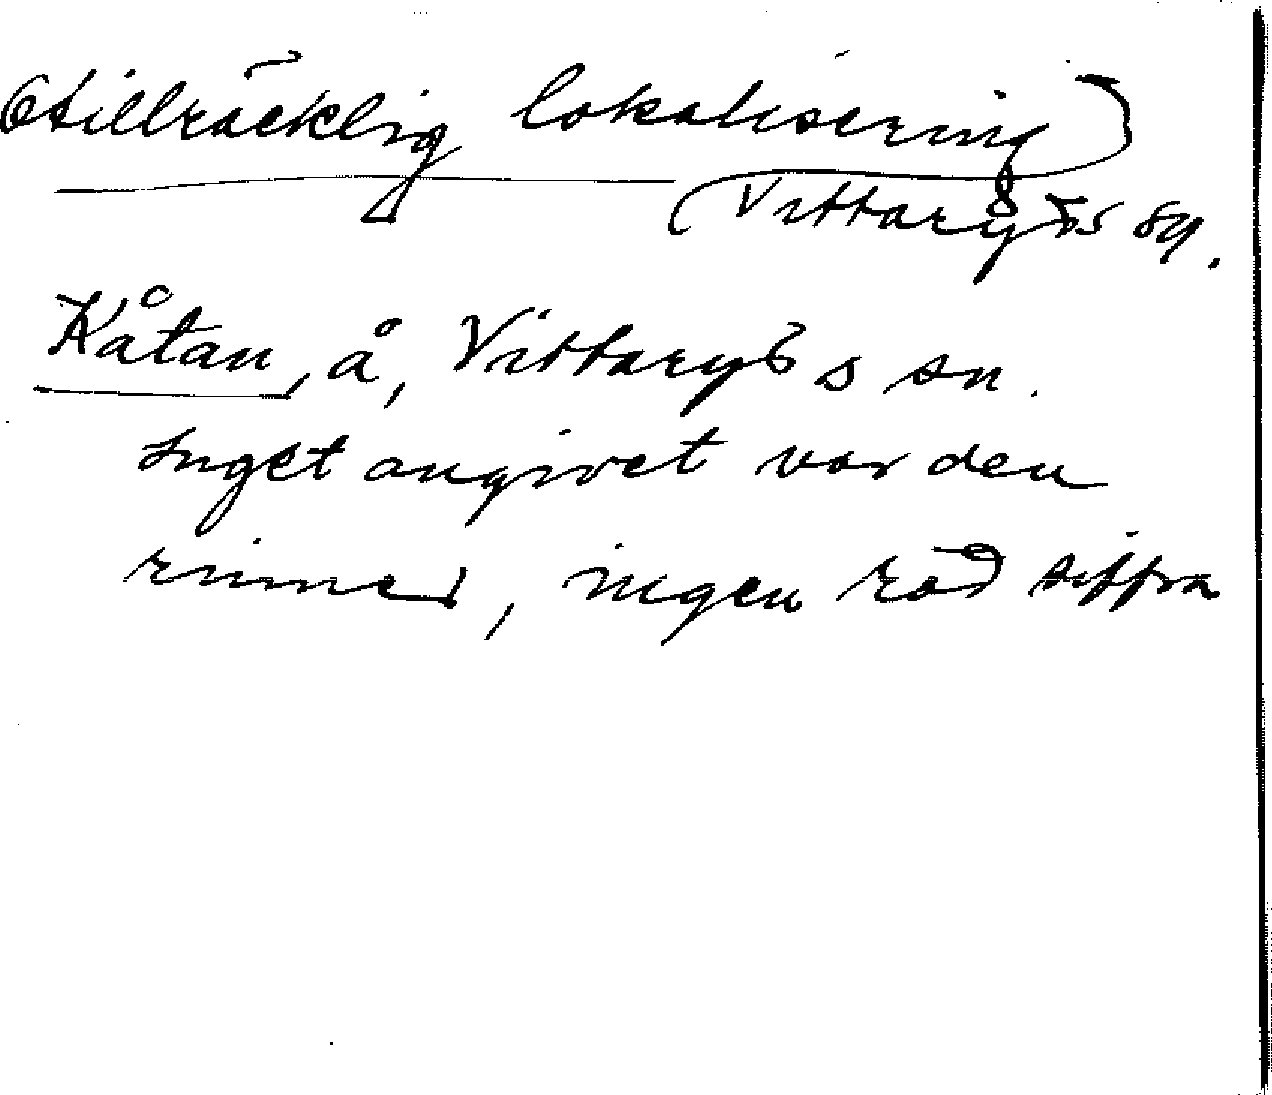 Otillräcklig lokalisering
Vittaryds 89.
Kåtan, å, Vittaryds sn.
Inget angivet var den
rinner, ingen röd siffra